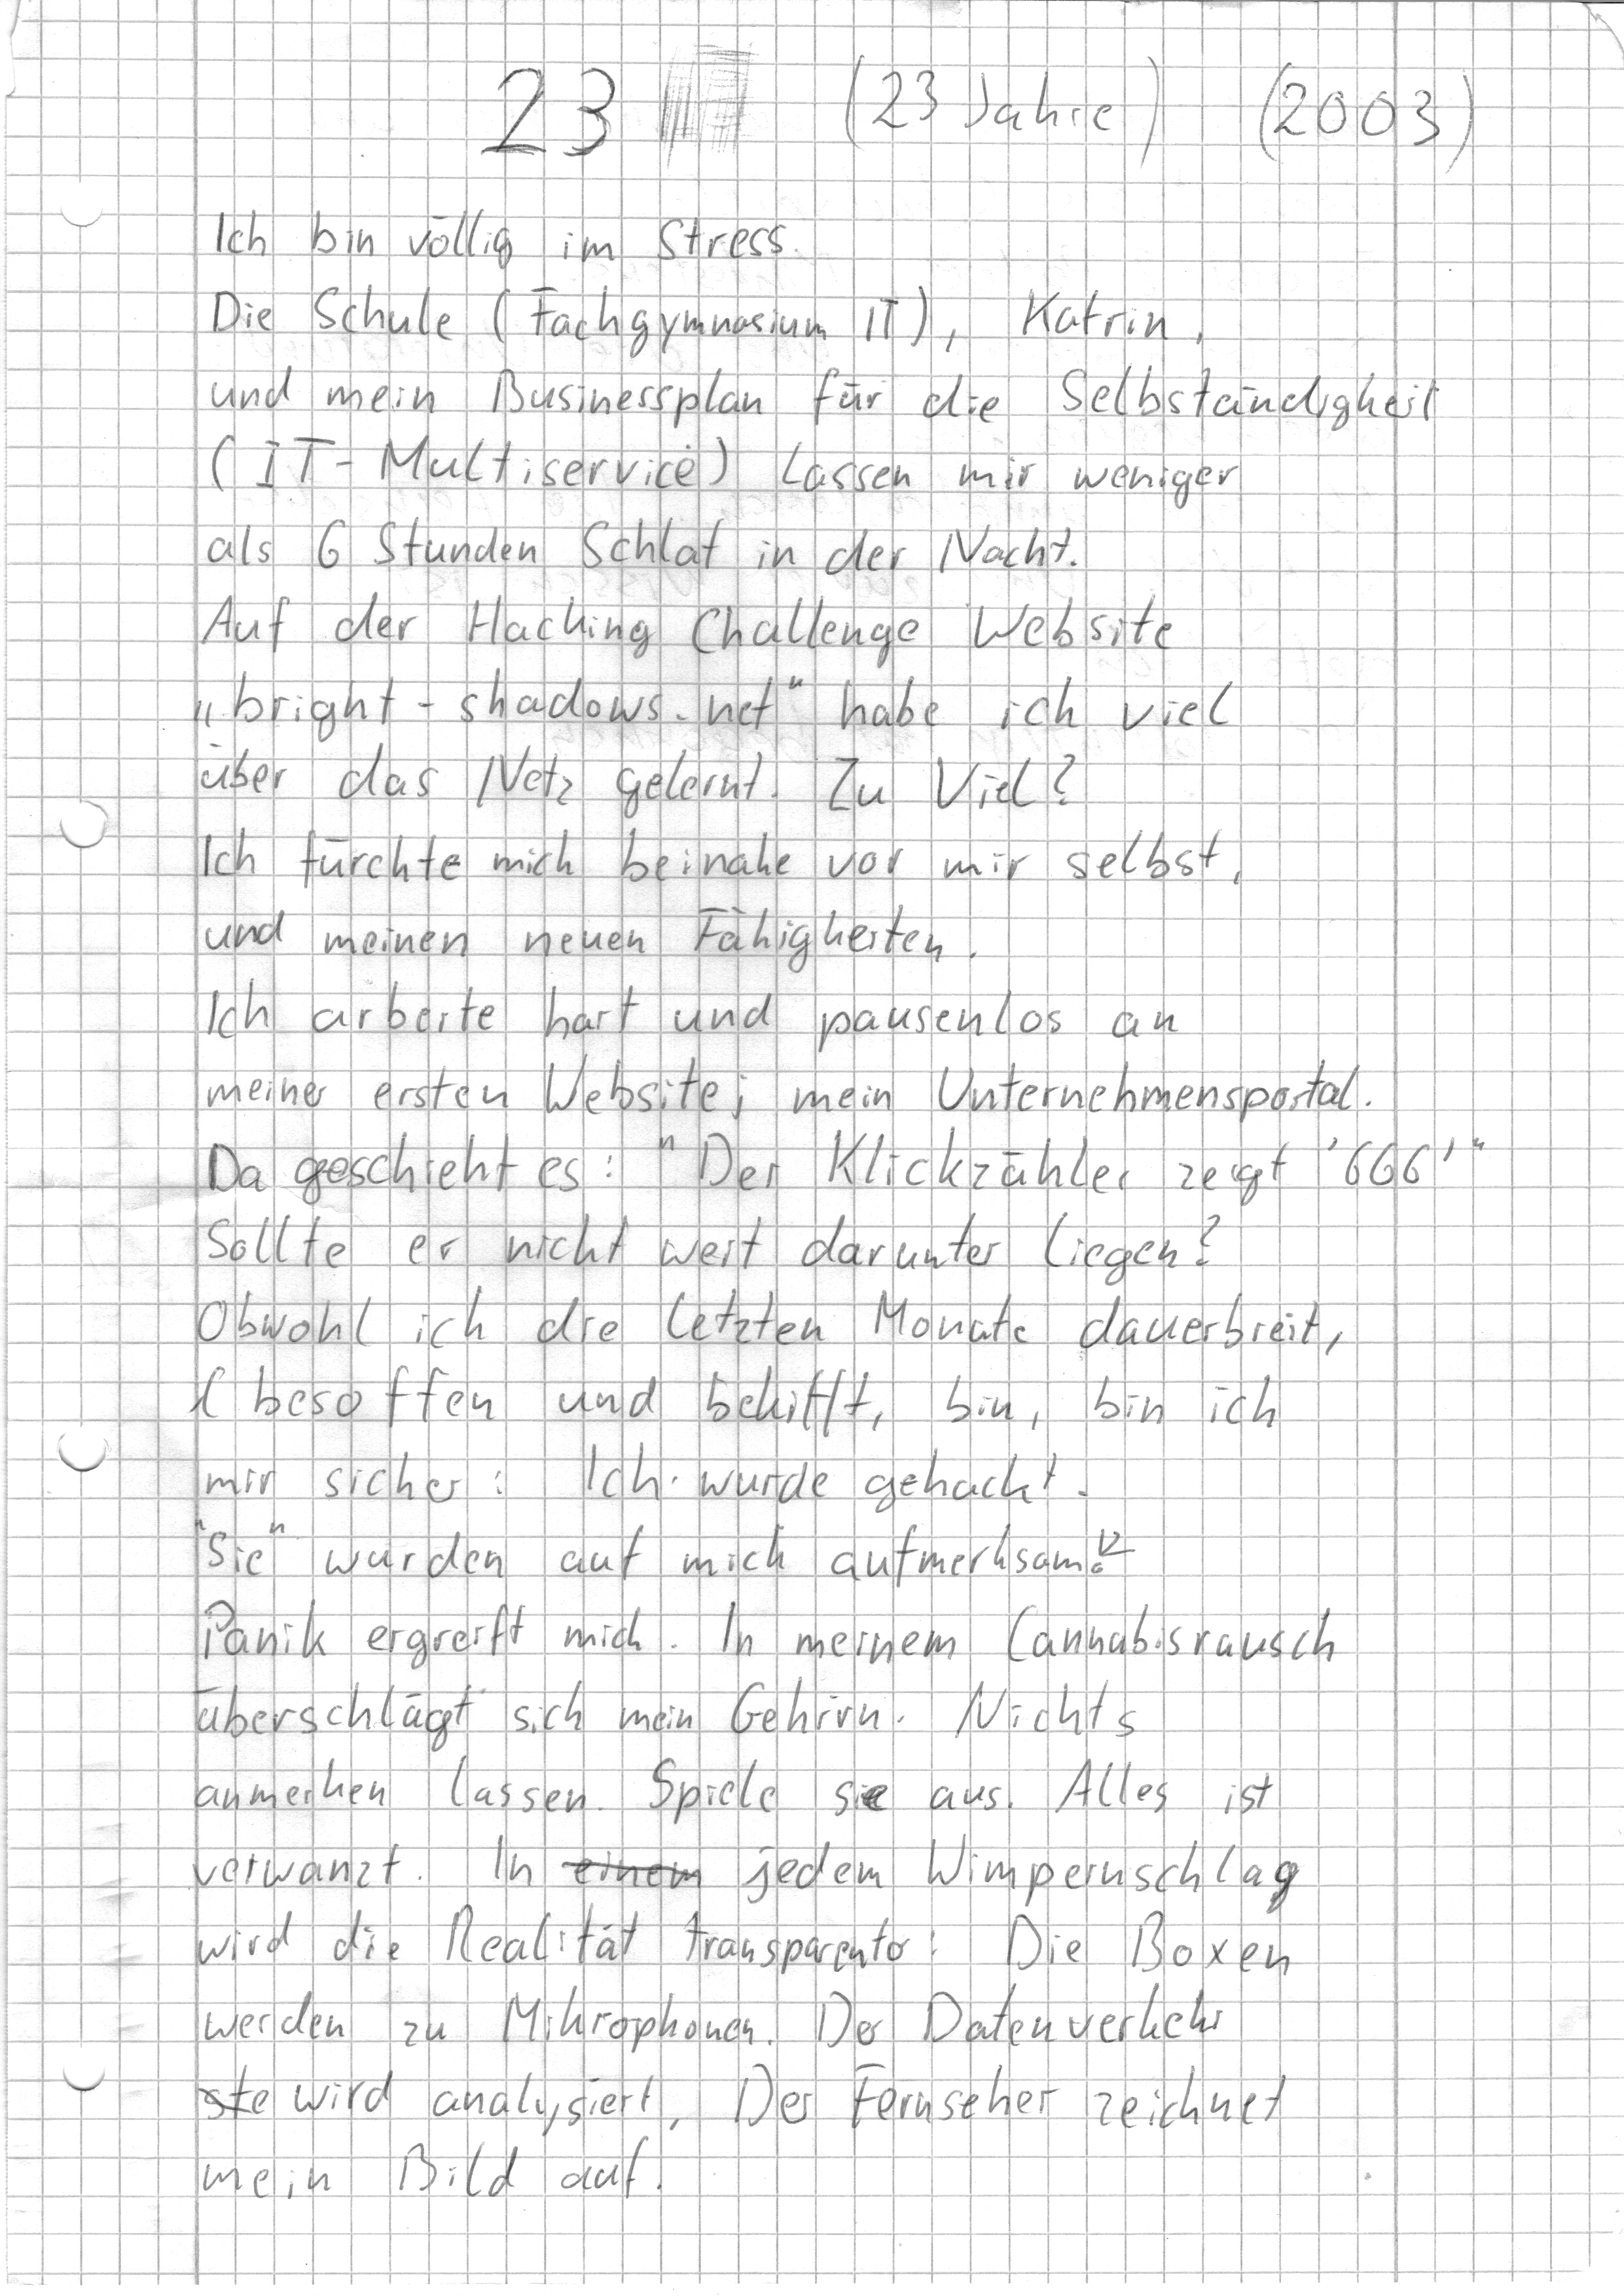 23 (23 Jahre) (2003)
Ich bin völlig im Stress.
Die Schule (Fachgymnasium IT), Katrin,
und mein Businessplan für die Selbständigkeit
(IT-Multiservice) lassen mir weniger
als 6 Stunden Schlaf in der Nacht.
Auf der Hacking Challenge Website
„bright-shadows.net" habe ich viel
über das Netz gelernt. Zu Viel?
Ich fürchte mich beinahe vor mir selbst,
und meinen neuen Fähigkeiten.
Ich arbeite hart und pausenlos an
meiner ersten Website; mein Unternehmensportal.
Da geschieht es: "Der Klickzähler zeigt '666'"
Sollte er nicht weit darunter liegen?
Obwohl ich die letzten Monate dauerbreit,
(besoffen und bekifft, bin, bin ich
mir sicher: Ich wurde gehackt.
"Sie" wurden auf mich aufmerksam!?
Panik ergreift mich. In meinem Cannabisrausch
überschlägt sich mein Gehirn. Nichts
anmerken lassen. Spiele sie aus. Alles ist
verwanzt. In einem jedem Wimpernschlag
wird die Realität transparenter: Die Boxen
werden zu Mikrophonen. Der Datenverkehr
ste wird analysiert, Der Fernseher zeichnet
mein Bild auf.